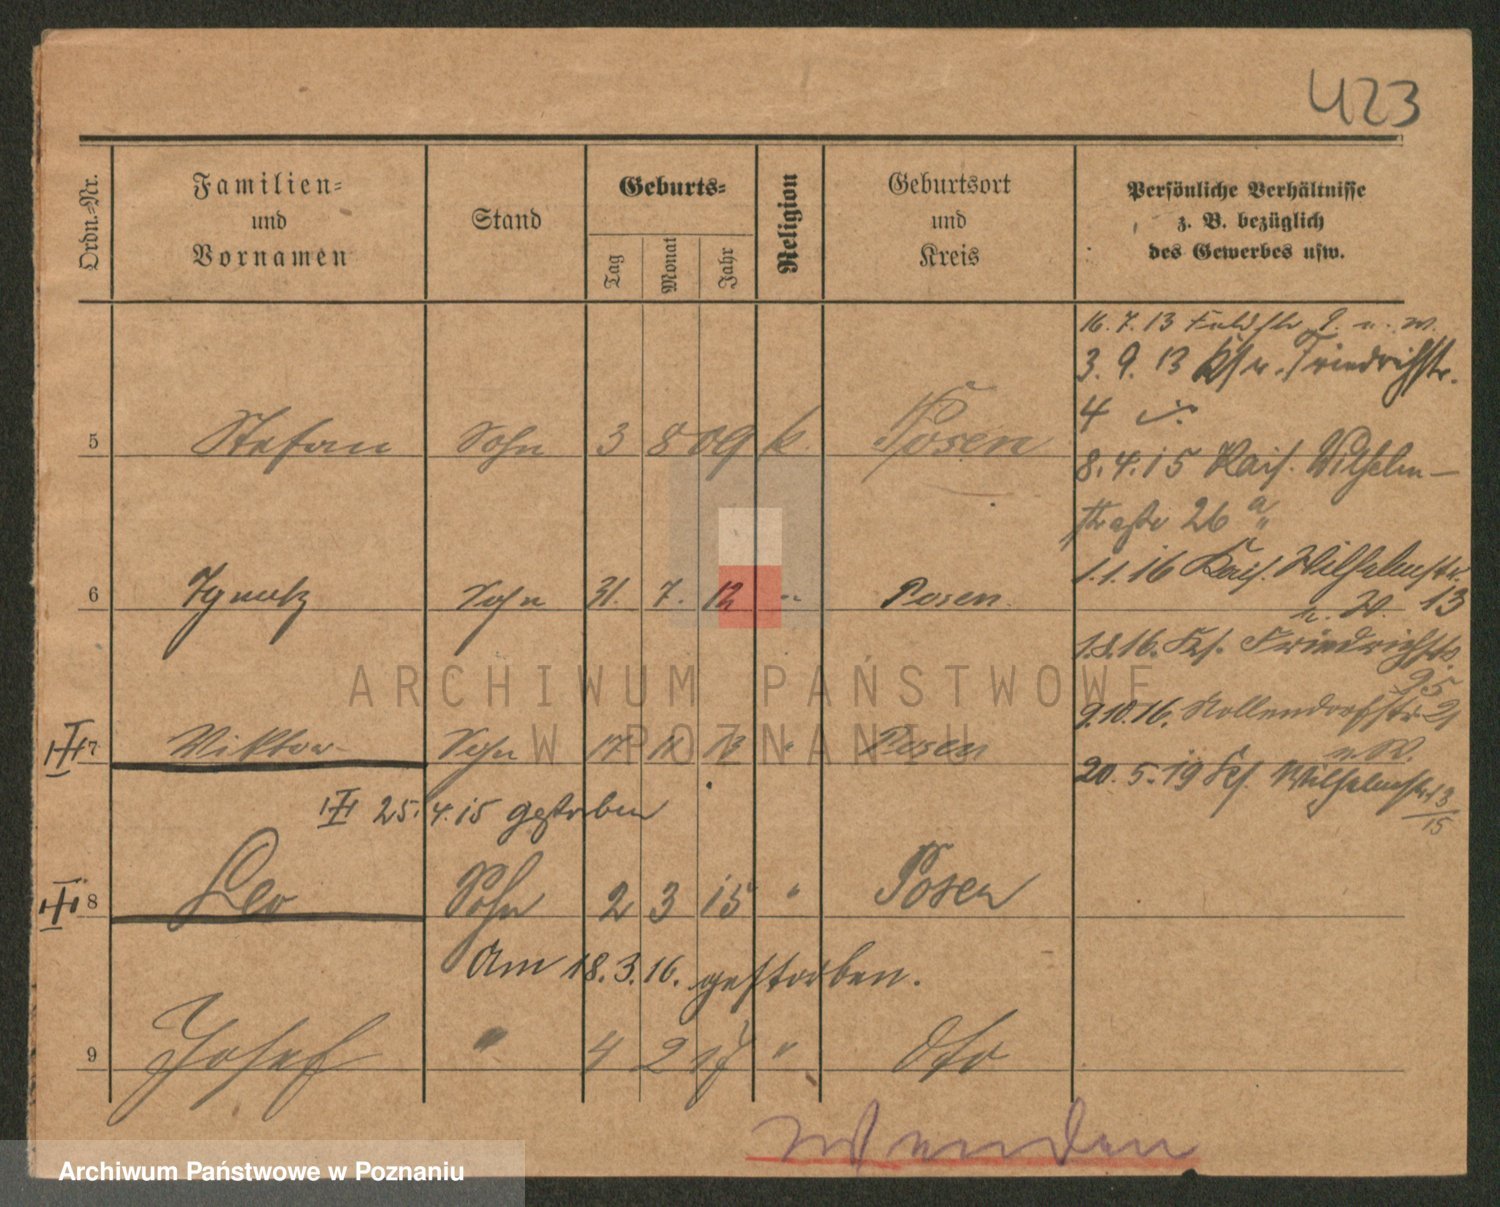 423
Ordn.=Nr.
Familien=
und
Vornamen
Stand
Geburts=
Tag
Monat
Jahr
Religion
Geburtsort
und
Kreis
Persönliche Verhältnisse
z. B. bezüglich
des Gewerbes usw.
16. 7. 13 Feldstr 9. u. W.
3. 9. 13 Ksr. Friedrichstr.
4
8. 4. 15 Kais. Wilhelm-
straße 26 a
1. 1. 16 Kais. Wilhelmstr.
13
u. W.
1. 8. 16. Ks. Friedrichstr.
95
9. 10. 16. Nollendorfstr. 21
u. W.
20. 5. 19 Ks. Wilhelmstr. 13/15
5 Stefan Sohn 3 8 09 k. Posen
6 Ignatz Sohn 31. 7. 12 " Posen
7 Viktor Sohn 17 11 13 " Posen
25. 4. 15 gestorben
8 Leo Sohn 2 3 15 " Posen
Am 18. 3. 16. gestorben.
9 Josef " 4 2 17 " dto
Wenden
ARCHIWUM PAŃSTWOWE
W POZNANIU
Archiwum Państwowe w Poznaniu